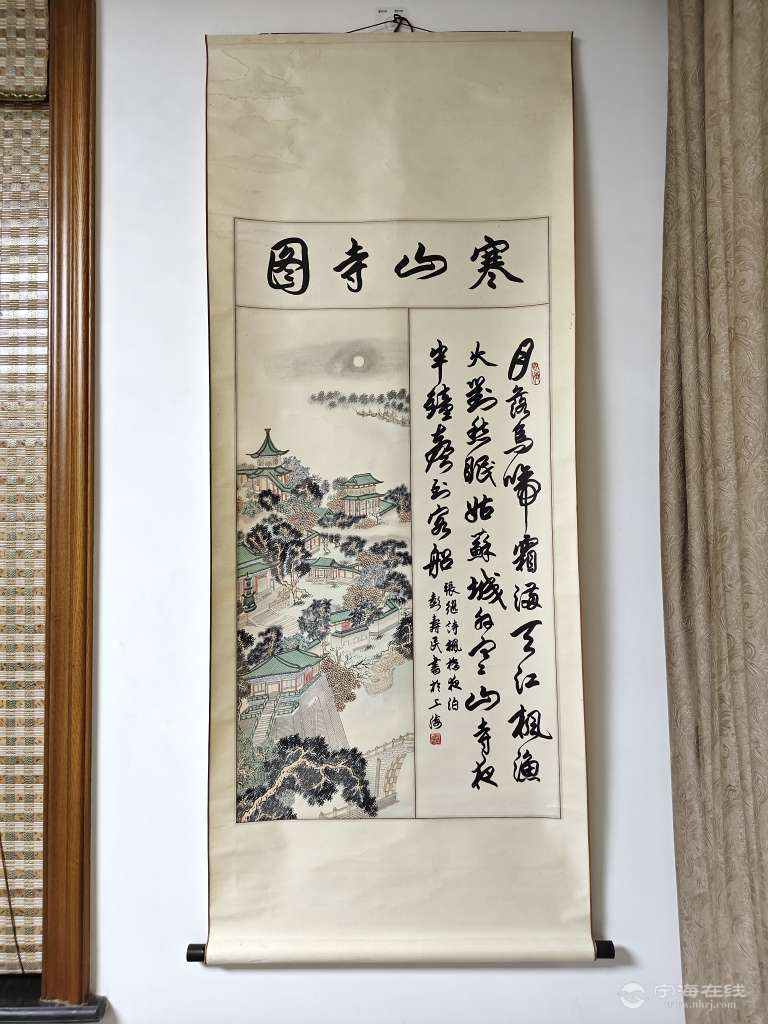 寒山寺图
月落烏啼霜滿天江楓漁
火對愁眠姑蘇城外寒山寺夜
半鐘聲到客船
張繼詩楓橋夜泊
彭寿民書於上海
宁海在线
www.nhzj.com